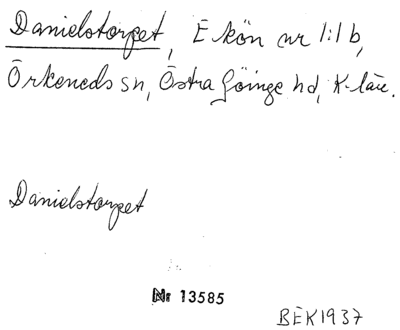 Danielstorpet, Ekön nr 1:1 b,
Örkeneds sn, Östra Göinge hd, K-län.
Danielstorpet
Nr 13585
BEK1937